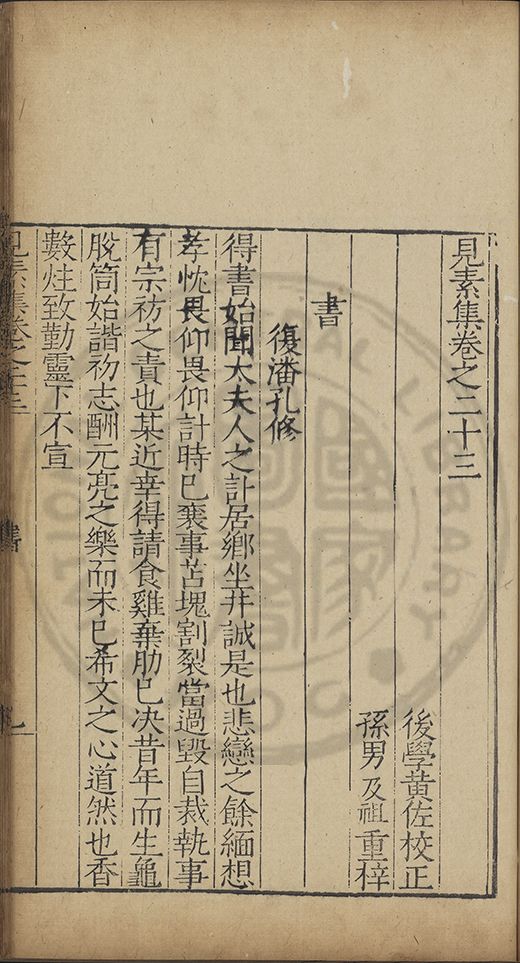 見素集卷之二十三
後學黃佐校正
孫男及祖重梓
書
復潘孔修
得書始聞太夫人之訃居鄉坐井誠是也悲戀之餘緬想
孝忱畏仰畏仰計時已襄事苫塊割裂當過毀自裁執事
有宗祊之責也某近幸得請食雞棄肋已决昔年而生龜
脫筒始諧初志酬元亮之樂而未已希文之心道然也香
數炷致勤靈下不宣
見素集卷之二十三
書